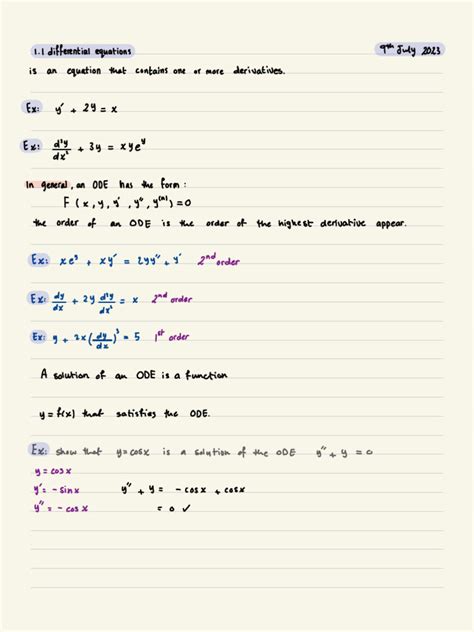 1.1 differential equations 9th July 2023
is an equation that contains one or more derivatives.
Ex: y' + 2y = x
Ex: d²y/dx² + 3y = xye^y
In general, an ODE has the form:
F(x, y, y', y'', y^(n)) = 0
the order of an ODE is the order of the highest derivative appear.
Ex: xe^y + xy' = 2yy'' + y' 2nd order
Ex: dy/dx + 2y d²y/dx² = x 2nd order
Ex: y + 2x(dy/dx)³ = 5 1st order
A solution of an ODE is a function
y = f(x) that satisfies the ODE.
Ex: show that y = cosx is a solution of the ODE y'' + y = 0
y = cosx
y' = - sinx y'' + y = - cosx + cosx
y'' = - cosx = 0 ✓